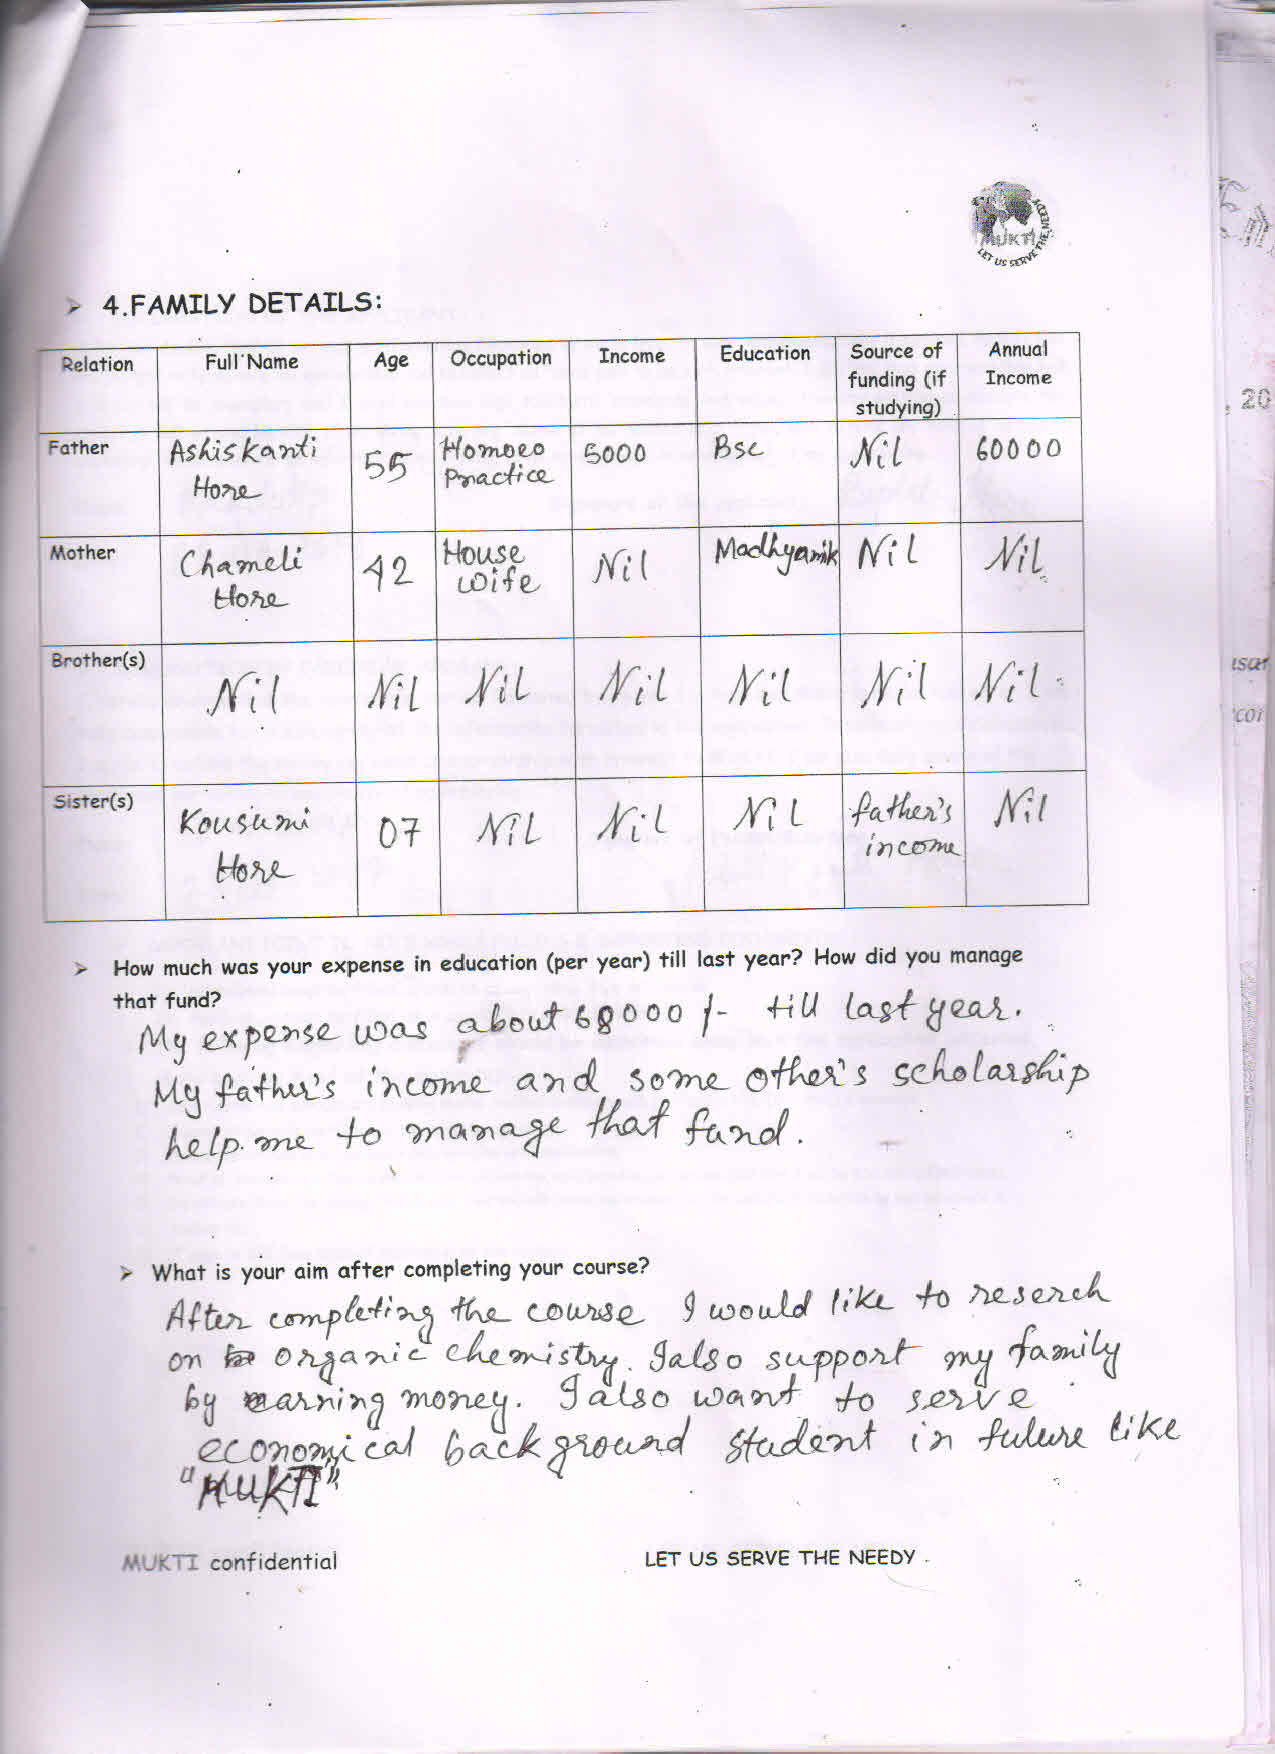 MUKTI
LET US SERVE THE NEEDY
4.FAMILY DETAILS:
Relation Full Name Age Occupation Income Education Source of funding (if studying) Annual Income
Father Ashiskanti Hore 55 Homoeo Practice 5000 Bsc Nil 60000
Mother Chameli Hore 42 House wife Nil Madhyamik Nil Nil
Brother(s) Nil Nil Nil Nil Nil Nil Nil
Sister(s) Kousumi Hore 07 Nil Nil Nil father's income Nil
How much was your expense in education (per year) till last year? How did you manage
that fund?
My expense was about 68000/- till last year.
My father's income and some other's scholarship
help me to manage that fund.
What is your aim after completing your course?
After completing the course I would like to reserch
on organic chemistry. I also support my family
by earning money. I also want to serve
economical background student in future like
"MUKTI"
MUKTI confidential LET US SERVE THE NEEDY
20